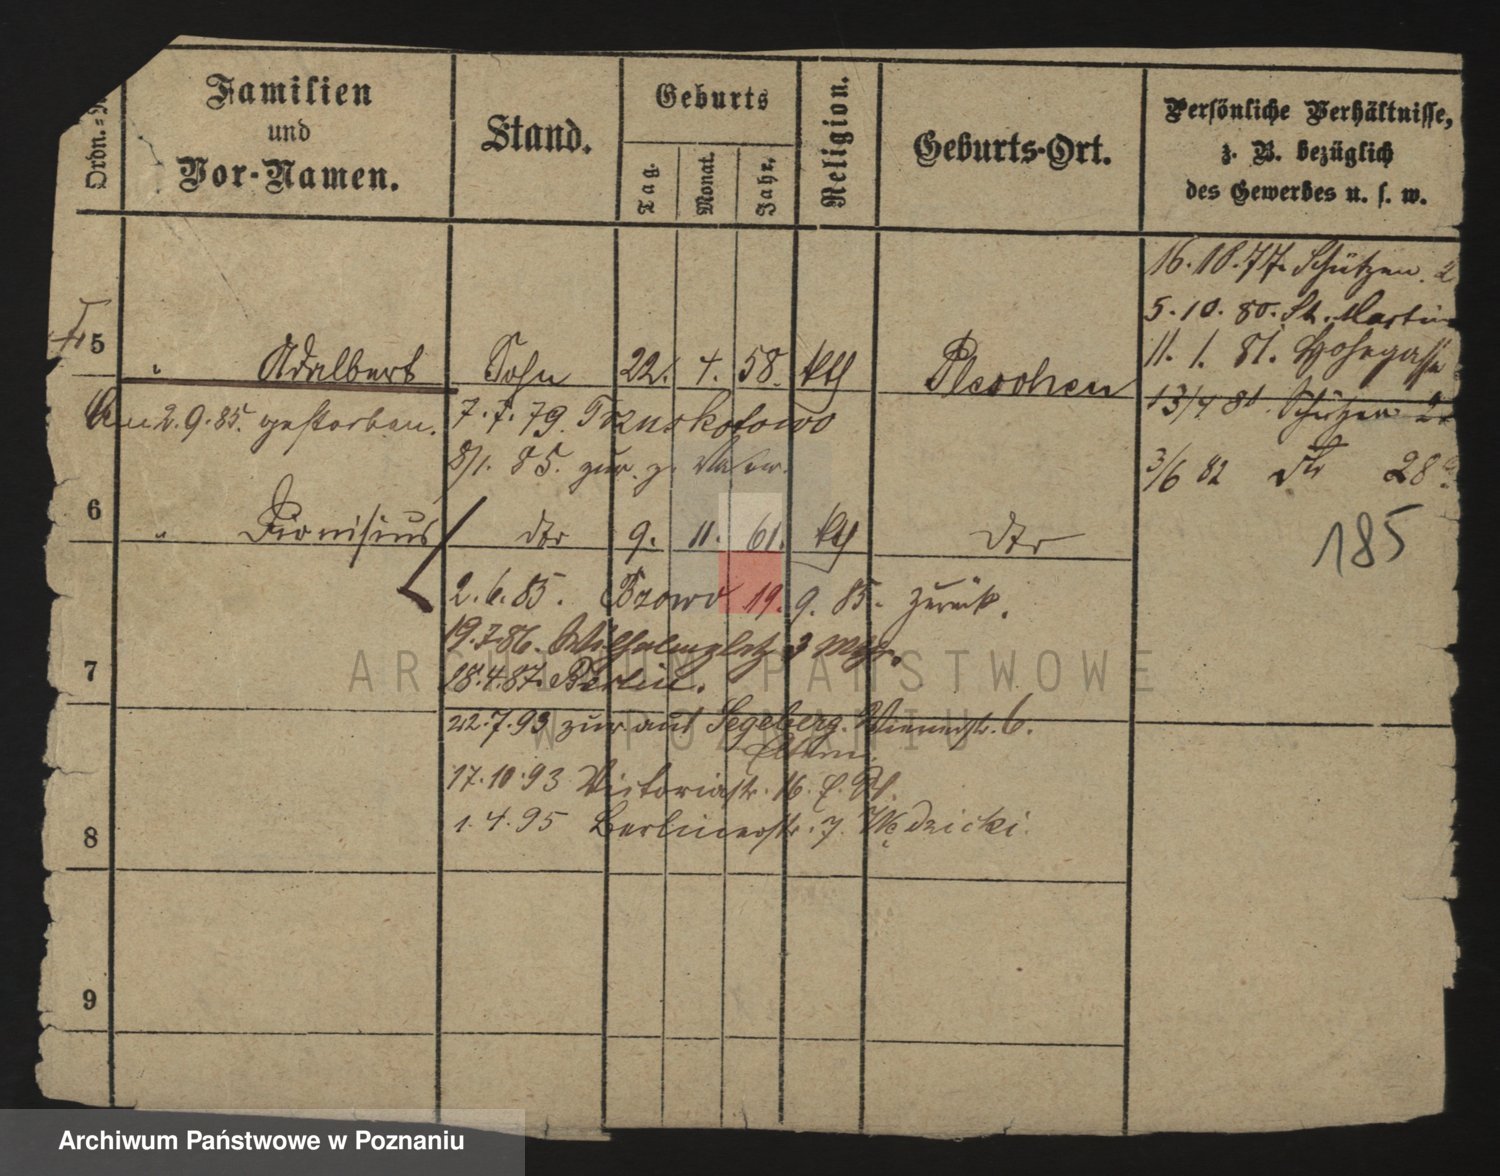 Ordn.-N
Familien
und
Vor-Namen.
Stand.
Geburts
Tag.
Monat.
Jahr.
Religion.
Geburts-Ort.
Persönliche Verhältnisse,
z. B. bezüglich
des Gewerbes u. s. w.
16.10.77. Schützen. 2
5.10.80. St. Martin
11. 1. 81. Hohegasse
13/4 81. Schützen
3/6 82 dto 28
185
5 " Adalbert Sohn 22. 4. 58. kth Pleschen
Am 2.9.85. gestorben. 7.7.79. Trzuskotowo
8/1. 85. zur.
6 " Dionisius dto 9. 11. 61. kth dto
2.6.85. Bzowo 19.9.85. zurück.
19.7.86. Wilhelmplatz 3
7
18.4.87. Berlin.
22.7.93 zur aus Segeberg. Wienerstr. 6.
Eltern.
17.10.93 Victoriastr. 16.
1.4.95 Berlinerstr. 7. Wędzicki.
8
9
ARCHIWUM PAŃSTWOWE
W POZNANIU
Archiwum Państwowe w Poznaniu